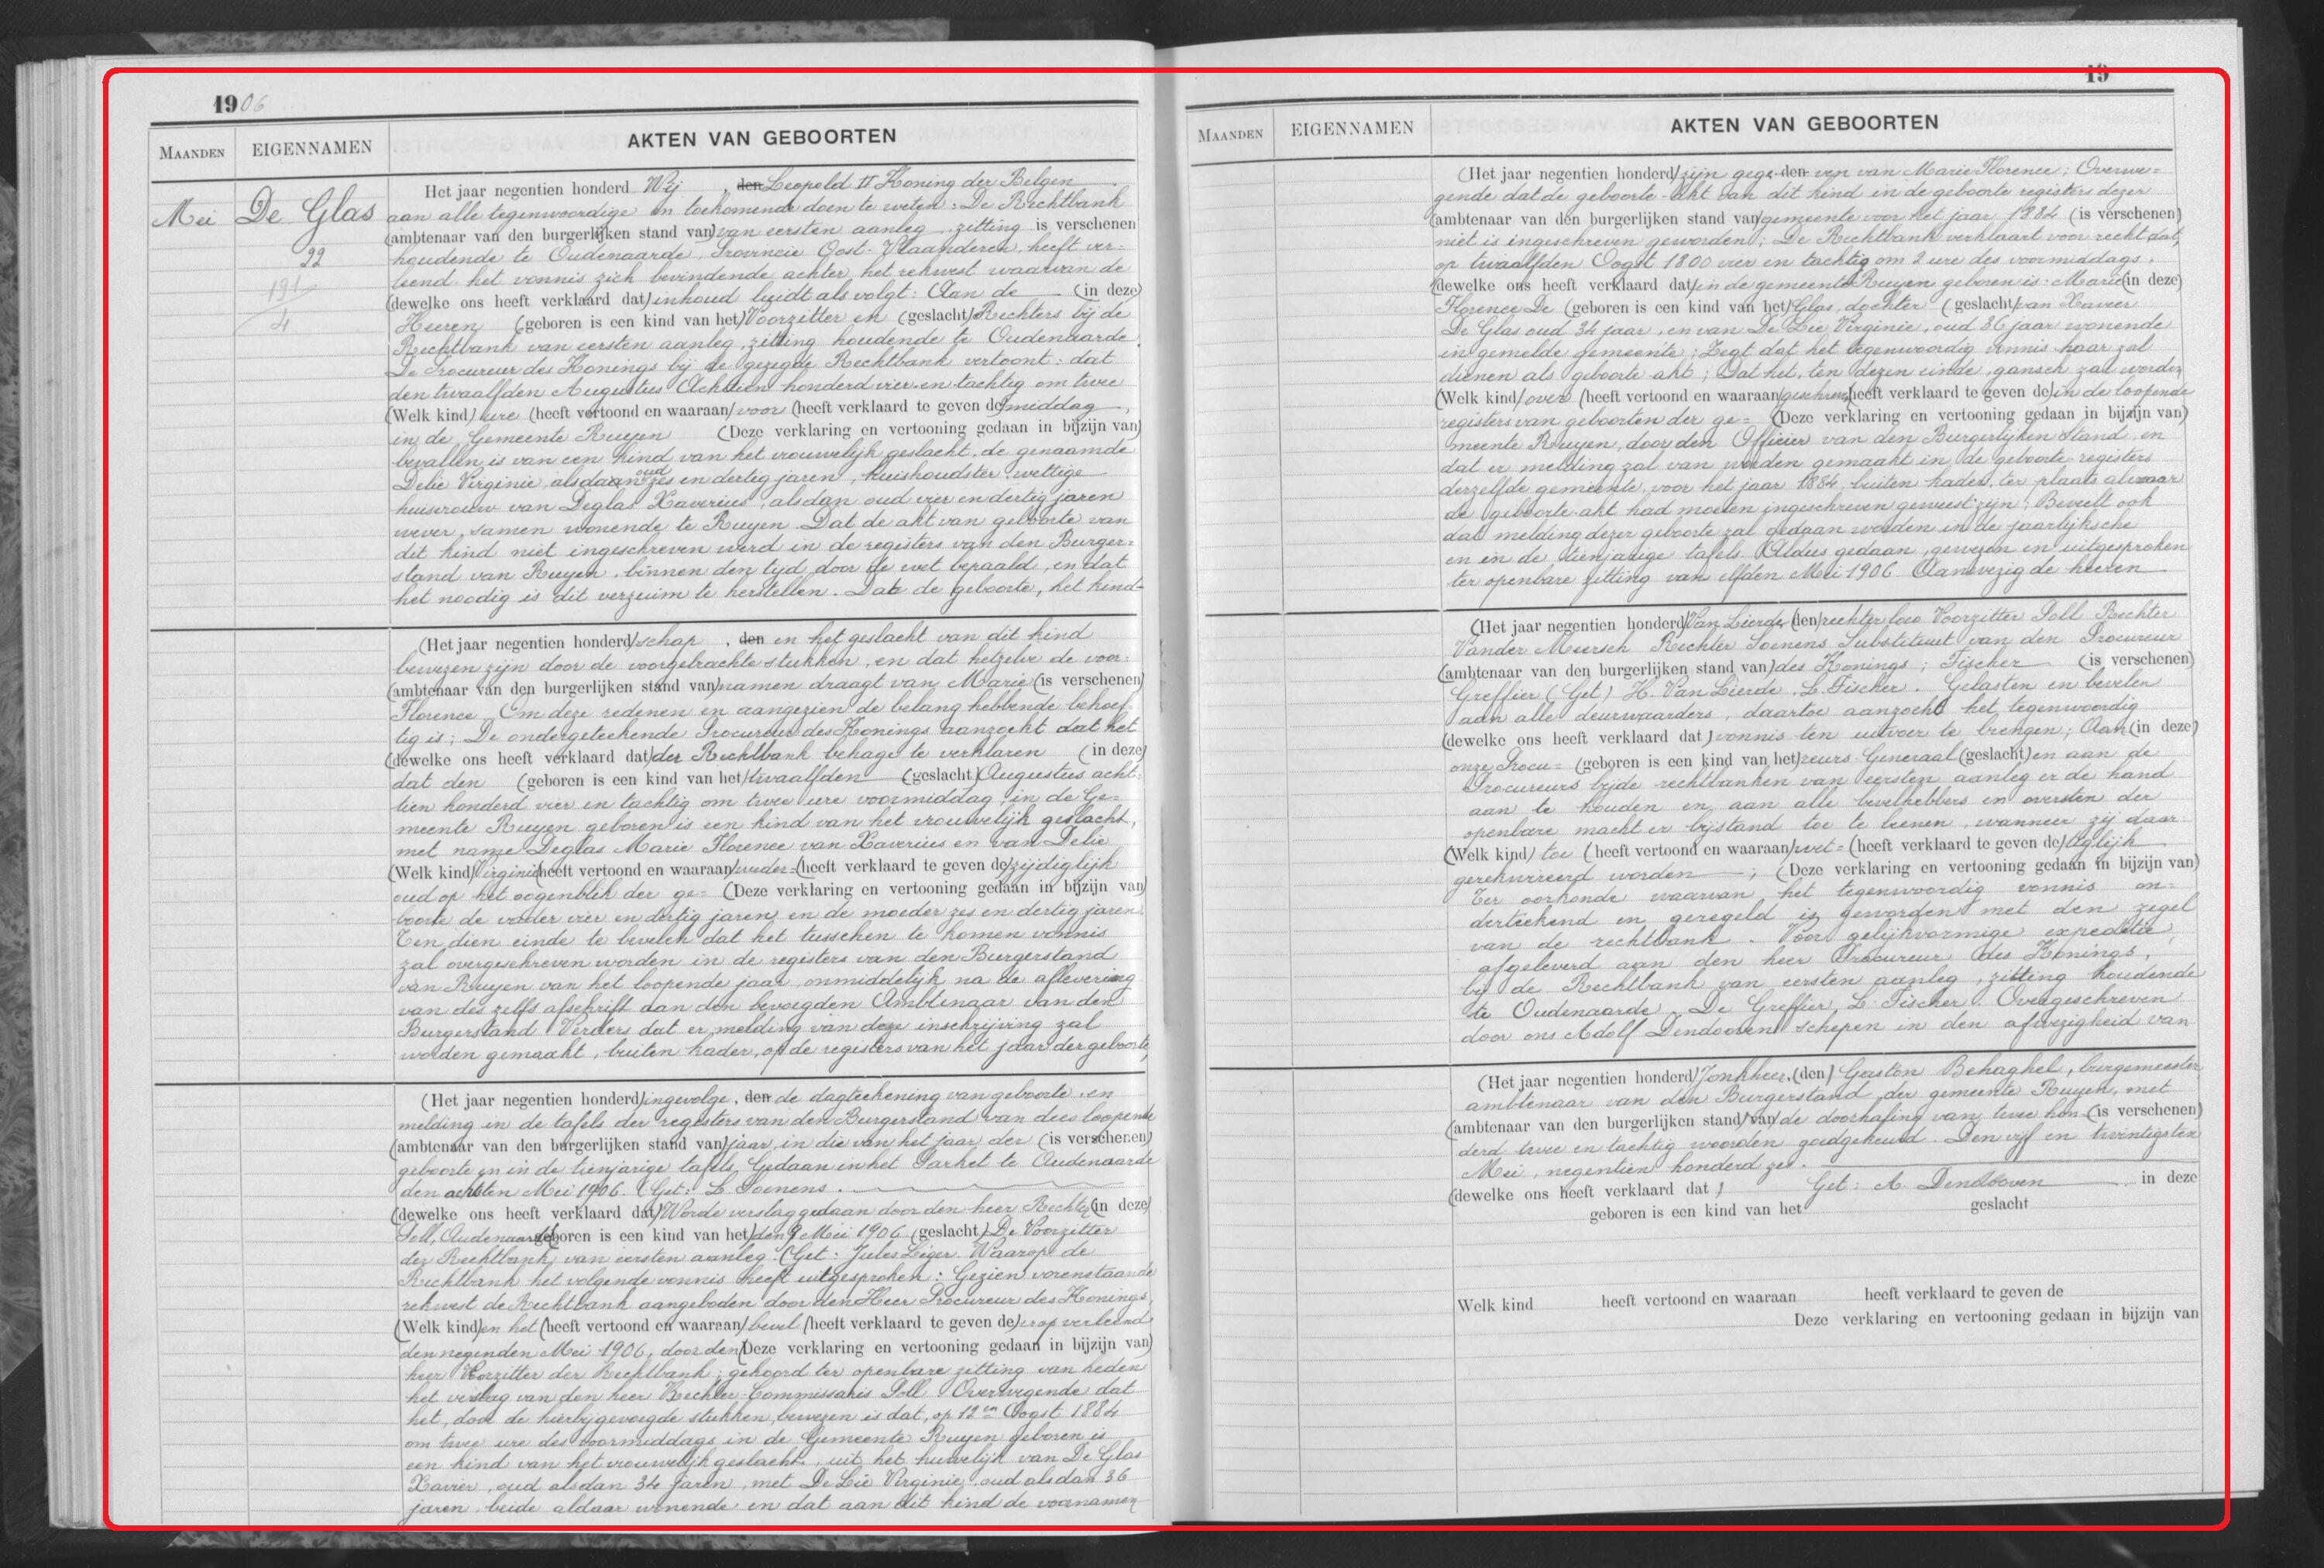 1906
MAANDEN EIGENNAMEN AKTEN VAN GEBOORTEN
Het jaar negentien honderd Wij , den Leopold II Koning der Belgen
Mei De Glas aan alle tegenwoordige en toekomende doen te weten: De Rechtbank
(ambtenaar van den burgerlijken stand van) van eersten aanleg zitting is verschenen
22 houdende te Oudenaarde, Provincie Oost-Vlaanderen, heeft ver-
leend het vonnis zich bevindende achter het rekwest waarvan de
191
(dewelke ons heeft verklaard dat) inhoud luidt als volgt: Aan de (in deze)
4 Heeren (geboren is een kind van het) Voorzitter en (geslacht) Rechters bij de
Rechtbank van eersten aanleg, zitting houdende te Oudenaarde.
De Procureur des Konings bij de gezegde Rechtbank vertoont: dat
den twaalfden Augustus Achttien honderd vier en tachtig om twee
(Welk kind) ure (heeft vertoond en waaraan) voor (heeft verklaard te geven de) middag,
in de Gemeente Ruyen (Deze verklaring en vertooning gedaan in bijzijn van)
bevallen is van een kind van het vrouwelijk geslacht, de genaamde
Delie Virginie, alsdan oud zes en dertig jaren, huishoudster, wettige
huisvrouw van Deglas Xaverius, alsdan oud vier en dertig jaren
wever, samen wonende te Ruyen. Dat de akt van geboorte van
dit kind niet ingeschreven werd in de registers van den Burger=
stand van Ruyen, binnen den tijd door de wet bepaald, en dat
het noodig is dit verzuim te herstellen. Dat de geboorte, het kind-
(Het jaar negentien honderd) schap , den en het geslacht van dit kind
bewezen zijn door de voorgebrachte stukken, en dat hetzelve de voor-
(ambtenaar van den burgerlijken stand van) namen draagt van Marie (is verschenen)
Florence. Om deze redenen en aangezien de belanghebbende behoef-
tig is; De ondergeteekende Procureur des Konings aanzoekt dat het
(dewelke ons heeft verklaard dat) der Rechtbank behage te verklaren (in deze)
dat den (geboren is een kind van het) twaalfden (geslacht) Augustus acht-
tien honderd vier en tachtig om twee ure voormiddag, in de Ge=
meente Ruyen geboren is een kind van het vrouwelijk geslacht,
met name Deglas Marie Florence van Xaverius en van Delie
(Welk kind) Virginie (heeft vertoond en waaraan) weder= (heeft verklaard te geven de) zijdiglijk
oud op het oogenblik der ge= (Deze verklaring en vertooning gedaan in bijzijn van)
boorte de vader vier en dertig jaren en de moeder zes en dertig jaren.
Ten dien einde te bevelen dat het tusschen te komen vonnis
zal overgeschreven worden in de registers van den Burgerstand
van Ruyen van het loopende jaar, onmiddelijk na de aflevering
van des zelfs afschrift aan den bevoegden Ambtenaar van den
Burgerstand. Verders dat er melding van deze inschrijving zal
worden gemaakt, buiten kader, op de registers van het jaar der geboorte,
(Het jaar negentien honderd) ingevolge, den de dagteekening van geboorte, en
melding in de tafels der registers van den Burgerstand van dees loopende
(ambtenaar van den burgerlijken stand van) jaar, in die van het jaar der (is verschenen)
geboorte en in de tienjarige tafels. Gedaan in het Parket te Oudenaarde
den achtsten Mei 1906. (Get: L. Soenens.
(dewelke ons heeft verklaard dat) Worde verslag gedaan door den heer Rechter (in deze)
Poll, Oudenaarde (geboren is een kind van het) den 9 Mei 1906 (geslacht) De Voorzitter
der Rechtbank van eersten aanleg. (Get: Jules Liger. Waarop de
Rechtbank het volgende vonnis heeft uitgesproken: Gezien vorenstaande
rekwest de Rechtbank aangeboden door den Heer Procureur des Konings,
(Welk kind) en het (heeft vertoond en waaraan) bevel (heeft verklaard te geven de) erop verleend
den negenden Mei 1906, door den (Deze verklaring en vertooning gedaan in bijzijn van)
heer Voorzitter der Rechtbank; gehoord ter openbare zitting van heden
het verslag van den heer Rechter-Commissaris Poll. Overwegende dat
het, door de hierbijgevoegde stukken, bewezen is dat, op 12en Oogst 1884
om twee ure des voormiddags in de Gemeente Ruyen geboren is
een kind van het vrouwelijk geslacht, uit het huwelijk van De Glas
Xavier, oud alsdan 34 jaren, met De Lie Virginie, oud alsdan 36
jaren, beide aldaar wonende en dat aan dit kind de voornamen
19
MAANDEN EIGENNAMEN AKTEN VAN GEBOORTEN
(Het jaar negentien honderd) zijn gege- den ven van Marie Florence; Overwe=
gende dat de geboorte-akt van dit kind in de geboorte registers dezer
(ambtenaar van den burgerlijken stand van) gemeente voor het jaar 1884 (is verschenen)
niet is ingeschreven geworden; De Rechtbank verklaart voor recht dat,
op twaalfden Oogst 1800 vier en tachtig om 2 ure des voormiddags,
(dewelke ons heeft verklaard dat) in de gemeente Ruyen geboren is: Marie (in deze)
Florence De (geboren is een kind van het) Glas, dochter (geslacht) van Xavier
De Glas oud 34 jaar, en van De Lie Virginie, oud 36 jaar wonende
in gemelde gemeente; Zegt dat het tegenwoordig vonnis haar zal
dienen als geboorte akt; Dat het, ten dezen einde, gansch zal worden
(Welk kind) over (heeft vertoond en waaraan) geschreven (heeft verklaard te geven de) in de loopende
registers van geboorten der ge= (Deze verklaring en vertooning gedaan in bijzijn van)
meente Ruyen, door den Officier van den Burgerlijken Stand en
dat er melding zal van worden gemaakt in de geboorte-registers
derzelfde gemeente, voor het jaar 1884, buiten kader, ter plaats alwaar
de geboorte-akt had moeten ingeschreven geweest zijn; Beveelt ook
dat melding dezer geboorte zal gedaan worden in de jaarlijksche
en in de tienjarige tafels. Aldus gedaan, gewezen en uitgesproken
ter openbare zitting van elfden Mei 1906. Aanwezig de heeren
(Het jaar negentien honderd) Van Lierde, (den) rechter loco Voorzitter Poll Rechter
Vander Meersch Rechter Soenens Substituut van den Procureur
(ambtenaar van den burgerlijken stand van) des Konings; Fischer (is verschenen)
Greffier (Get) H. Van Lierde, L. Fischer. Gelasten en bevelen
aan alle deurwaarders, daartoe aanzocht het tegenwoordig
(dewelke ons heeft verklaard dat) vonnis ten uitvoer te brengen; Aan (in deze)
onze Procu= (geboren is een kind van het) reurs-Generaal (geslacht) en aan de
Procureurs bijde rechtbanken van eersten aanleg er de hand
aan te houden en aan alle bevelhebbers en oversten der
openbare macht er bijstand toe te leenen, wanneer zij daar-
(Welk kind) toe (heeft vertoond en waaraan) wet= (heeft verklaard te geven de) tiglijk
gerekwireerd worden ; (Deze verklaring en vertooning gedaan in bijzijn van)
Ter oorkonde waarvan het tegenwoordig vonnis on=
derteekend en geregeld is geworden met den zegel
van de rechtbank. Voor gelijkvormige expeditie,
afgeleverd aan den heer Procureur des Konings,
bij de Rechtbank van eersten aanleg, zitting houdende
te Oudenaarde. De Greffier, L. Fischer. Overgeschreven
door ons Adolf Dendooven schepen in den afwezigheid van
(Het jaar negentien honderd) Jonkheer, (den) Gaston Behaghel, burgemeester
ambtenaar van den Burgerstand der gemeente Ruyen, met
(ambtenaar van den burgerlijken stand van) de doorhaling van twee hon- (is verschenen)
derd twee en tachtig woorden goedgekeurd. Den vijf en twintigsten
Mei, negentien honderd zes.
(dewelke ons heeft verklaard dat) Get: A. Dendooven in deze
geboren is een kind van het geslacht
Welk kind heeft vertoond en waaraan heeft verklaard te geven de
Deze verklaring en vertooning gedaan in bijzijn van